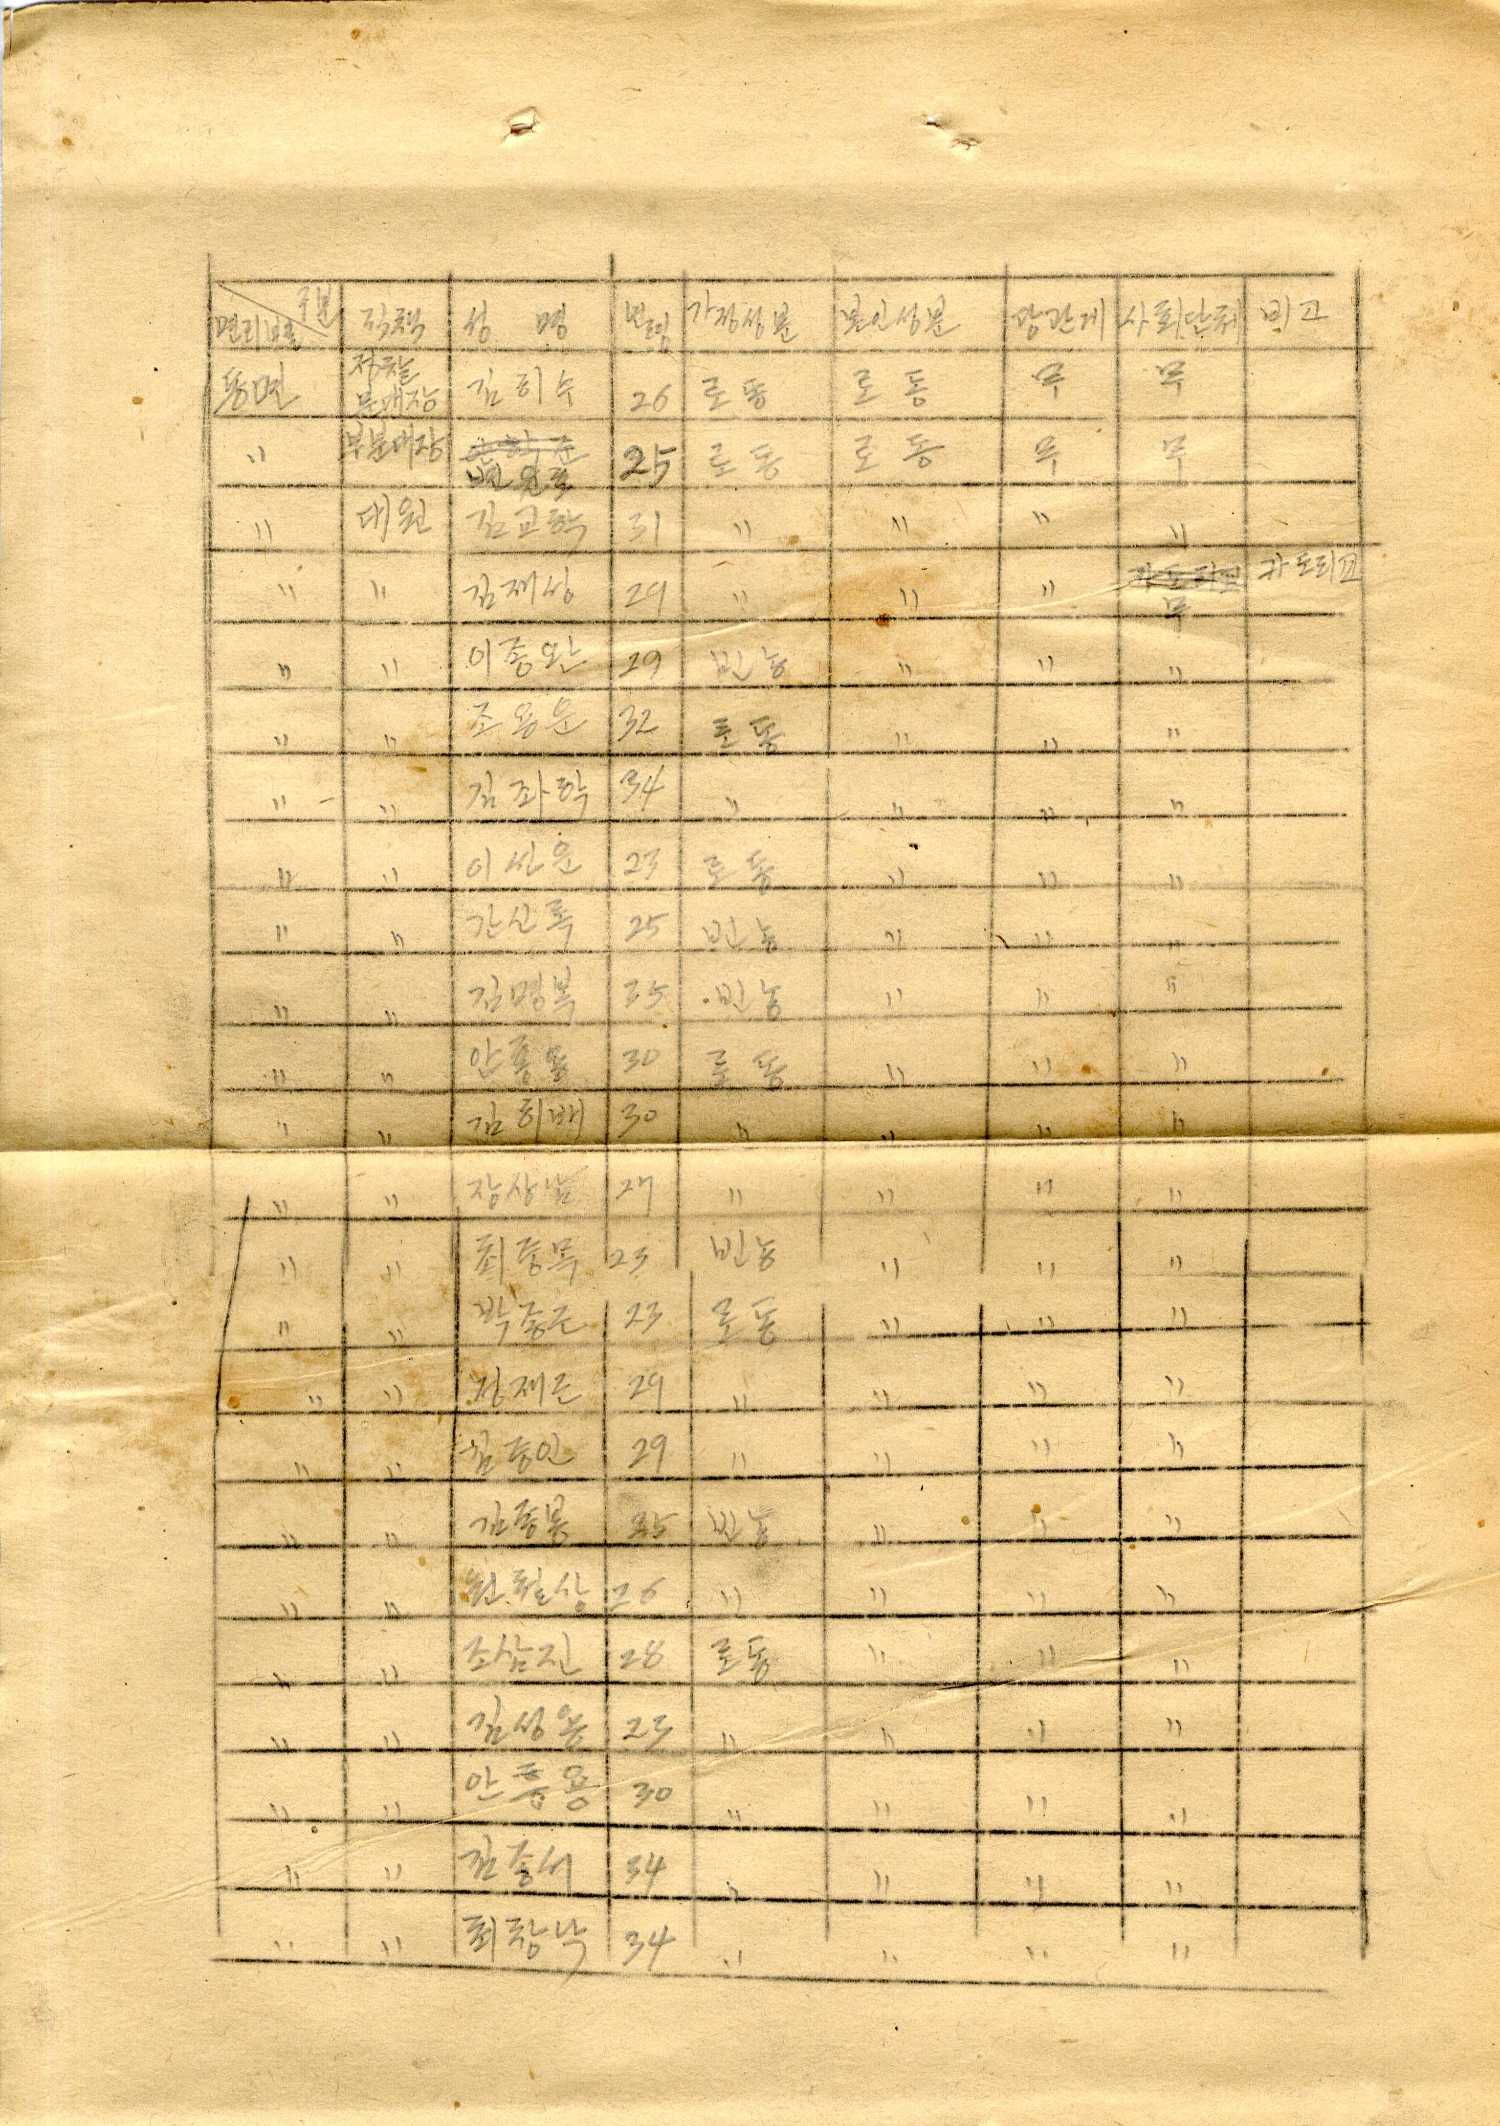 구분
면리별 직책 성 명 년령 가정성분 본인성분 당관게 사회단체 비고
동면 정찰분대장 김히수 26 로동 로동 무 무
〃 부분대장 25 로동 로동 무 무
〃 대원 김교학 31 〃 〃 〃 〃
〃 〃 김재성 29 〃 〃 〃 카도리교 무 카도리교
〃 〃 이종완 29 빈농 〃 〃 〃
〃 〃 조용운 32 로동 〃 〃 〃
〃 〃 김좌학 34 〃 〃 〃 〃
〃 〃 이선운 23 로동 〃 〃 〃
〃 〃 25 빈농 〃 〃 〃
〃 〃 김명복 35 빈농 〃 〃 〃
〃 〃 안흥용 30 로동 〃 〃 〃
〃 〃 김히배 30 〃 〃 〃 〃
〃 〃 장상남 27 〃 〃 〃 〃
〃 〃 최종묵 23 빈농 〃 〃 〃
〃 〃 박종근 23 로동 〃 〃 〃
〃 〃 정재근 29 〃 〃 〃 〃
〃 〃 김종인 29 〃 〃 〃 〃
〃 〃 김종봉 35 빈농 〃 〃 〃
〃 〃 26 〃 〃 〃 〃
〃 〃 조삼진 28 로동 〃 〃 〃
〃 〃 김성용 23 〃 〃 〃 〃
〃 〃 안흥용 30 〃 〃 〃 〃
〃 〃 김종서 34 〃 〃 〃 〃
〃 〃 최창낙 34 〃 〃 〃 〃